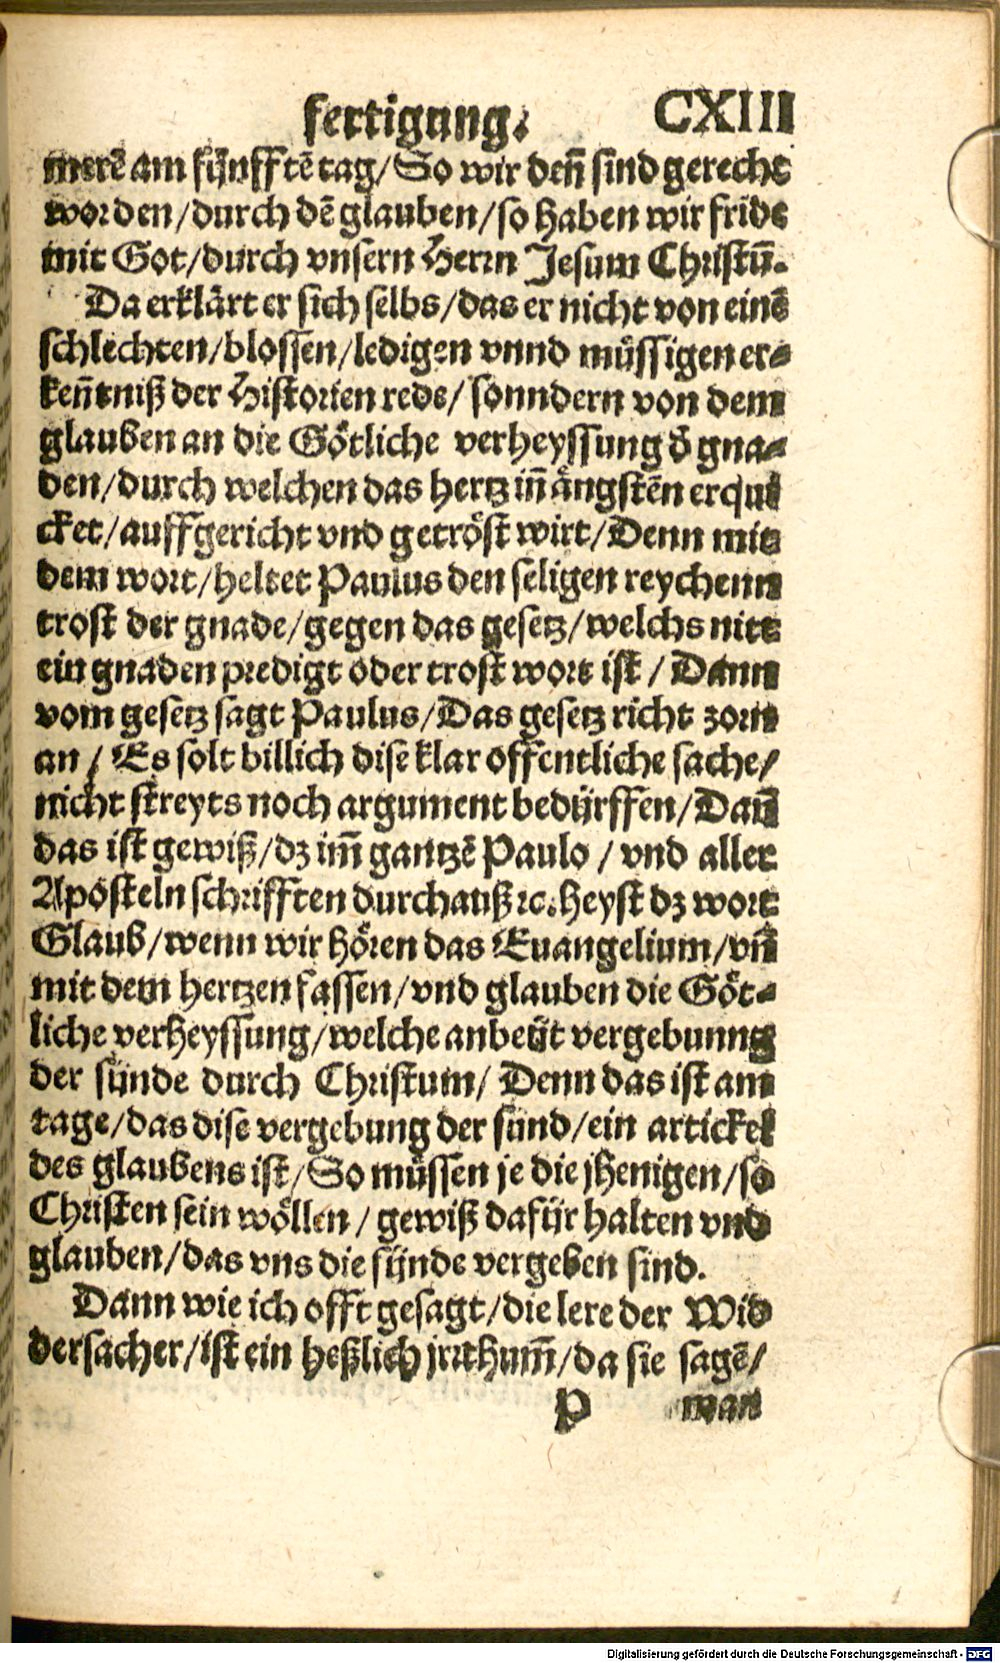 fertigung. CXIIII
merẽ am fünfftẽ tag/So wir deñ sind gerecht
worden/durch dẽ glauben/so haben wir fride
mit Got/durch vnsern Herrn Jesum Christũ.
Da erklärt er sich selbs/das er nicht von einẽ
schlechten/blossen/ledigen vnnd müssigen er-
keñtniß der Historien rede/ sonndern von dem
glauben an die Götliche verheyssung d̄ gna-
den/durch welchen das hertz iñ ängstẽn erqui
cket/auffgericht vnd getröst wirt/Denn mit
dem wort/heltet Paulus den seligen reychenn
trost der gnade/gegen das gesetz/welchs nitt
ein gnaden predigt oder trost wort ist / Dann
vom gesetz sagt Paulus/Das gesetz richt zorn
an / Es solt billich dise klar offentliche sache/
nicht streyts noch argument bedürffen/Dañ
das ist gewiß/dz im̃ gantzẽ Paulo / vnd aller
Aposteln schrifften durchauß ꝛc. heyst dz wort
Glaub/wenn wir hören das Euangelium/vñ
mit dem hertzen fassen/vnd glauben die Göt-
liche verheyssung/welche anbeüt vergebunng
der sünde durch Christum/ Denn das ist am
tage/das dise vergebung der sünd/ein artickel
des glaubens ist/So müssen je die jhenigen/so
Christen sein wöllen / gewiß dafür halten vnd
glauben/das vns die sünde vergeben sind.
Dann wie ich offt gesagt/die lere der Wid
dersacher/ist ein heßlich jrrthum̃/da sie sagẽ/
P man
Digitalisierung gefördert durch die Deutsche Forschungsgemeinschaft - DFG